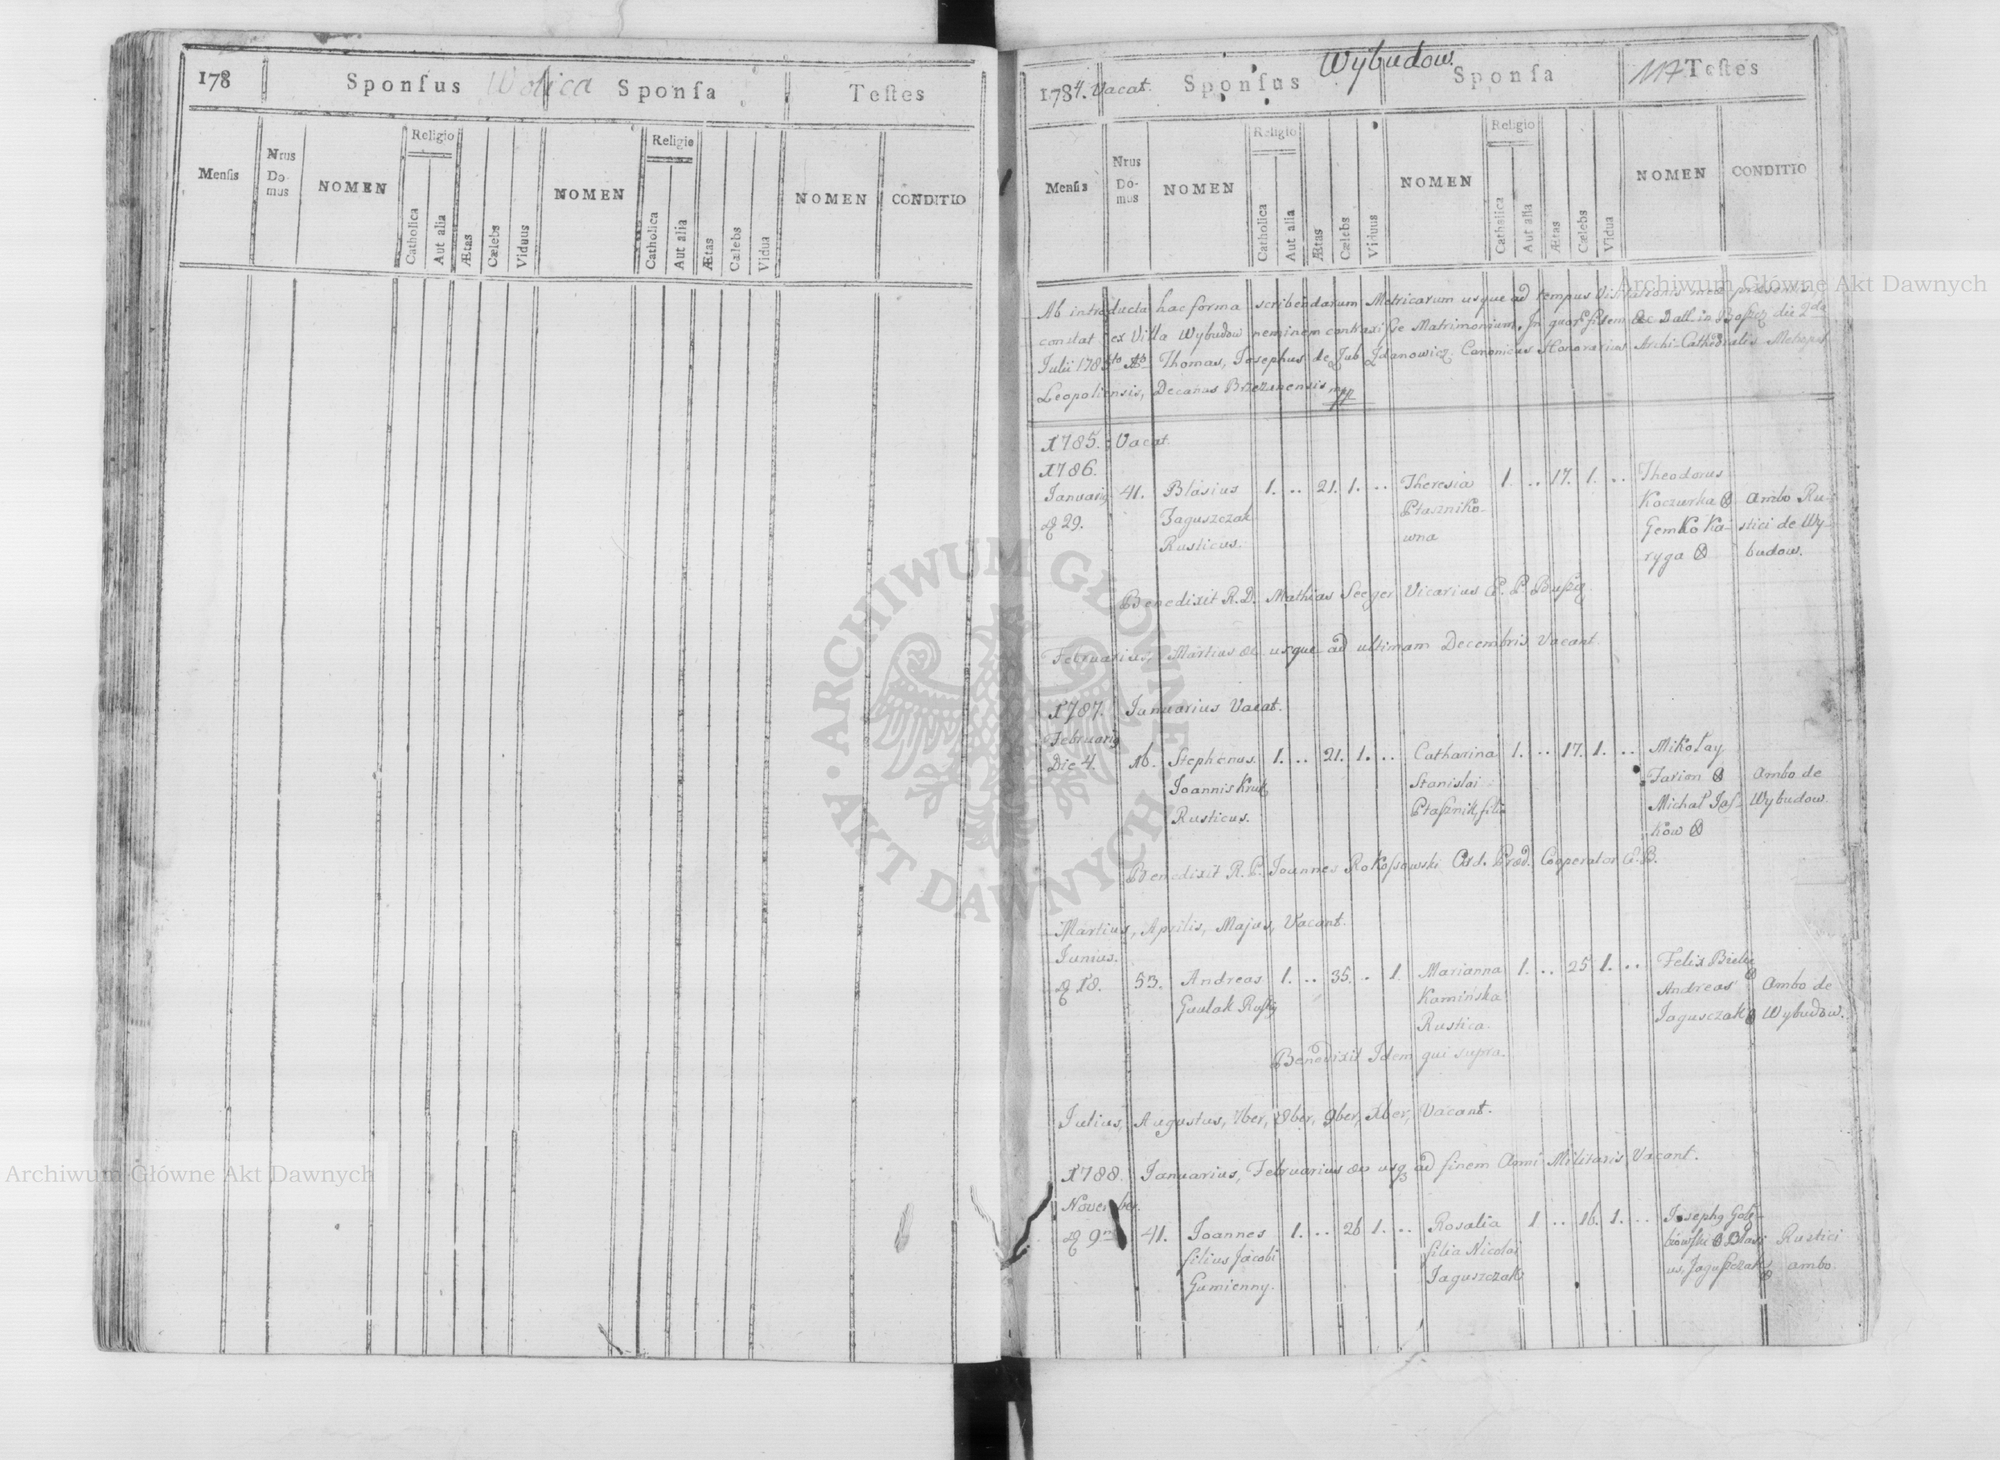 178 Sponſus Wolica Sponſa Teſtes
Menſis Nrus Domus NOMEN Religio Catholica Aut alia Ætas Cælebs Viduus NOMEN Religio Catholica Aut alia Ætas Cælebs Vidua NOMEN CONDITIO
Wybudow.
1784. Vacat. Sponſus Sponſa 117 Teſtes
Menſis Nrus Domus NOMEN Religio Catholica Aut alia Ætas Cælebs Viduus NOMEN Religio Catholica Aut alia Ætas Cælebs Vidua NOMEN CONDITIO
Ab introducta hac forma scribendarum Metricarum usque ad tempus Visitationis meæ præsentis
constat ex Villa Wybudow neminem contraxisse Matrimonium. In quor. fidem &c Datt. in die 2da
Julii 178 Thomas, Josephus de Zdanowicz Canonicus Honorarius Archi-Cathedralis Metropol.
Leopoliensis, Decanus Brzezanensis mpp
1785. Vacat.
1786.
Januarij 41. Blasius 1. .. 21. 1. .. Theresia 1. .. 17. 1. .. Theodorus
29. Jaguszczak Ptaszniko- Koczurka Ambo Ru-
Rusticus. wna Gemko Ka- stici de Wy-
ryga budow.
Benedixit R. D. Mathias Seeger Vicarius
Februarius, Martius &c usque ad ultimam Decembris, Vacant.
1787. Januarius Vacat.
Februarij
Die 4. 16. Stephanus 1. .. 21. 1. .. Catharina 1. .. 17. 1. .. Mikołay
Joannis Kruk Stanislai Farion Ambo de
Rusticus. Ptasznik, filia Michał Jaś- Wybudow.
ków
Benedixit R. P. Joannes Rokossowski Ord. Præd. Cooperator
Martius, Aprilis, Majus, Vacant.
Junius.
18. 53. Andreas 1. .. 35. . 1. Marianna 1. .. 25 1. .. Felix
Gaulak Kamińska Andreas Ambo de
Rustica. Jagusczak Wybudow.
Benedixit Idem qui supra.
Julius, Augustus, 7ber, 8ber, 9ber, Xber, Vacant.
1788. Januarius, Februarius &c usq ad finem Anni Militaris Vacant.
November.
9na 41. Joannes 1. .. 26 1. .. Rosalia 1 .. 16. 1. .. Joseph
filius Jacobi filia Nicolai Blasi- Rustici
Gumienny. Jaguszczak us, Jaguszczak ambo.
ARCHIWUM GŁÓWNE AKT DAWNYCH
Archiwum Główne Akt Dawnych
Archiwum Główne Akt Dawnych